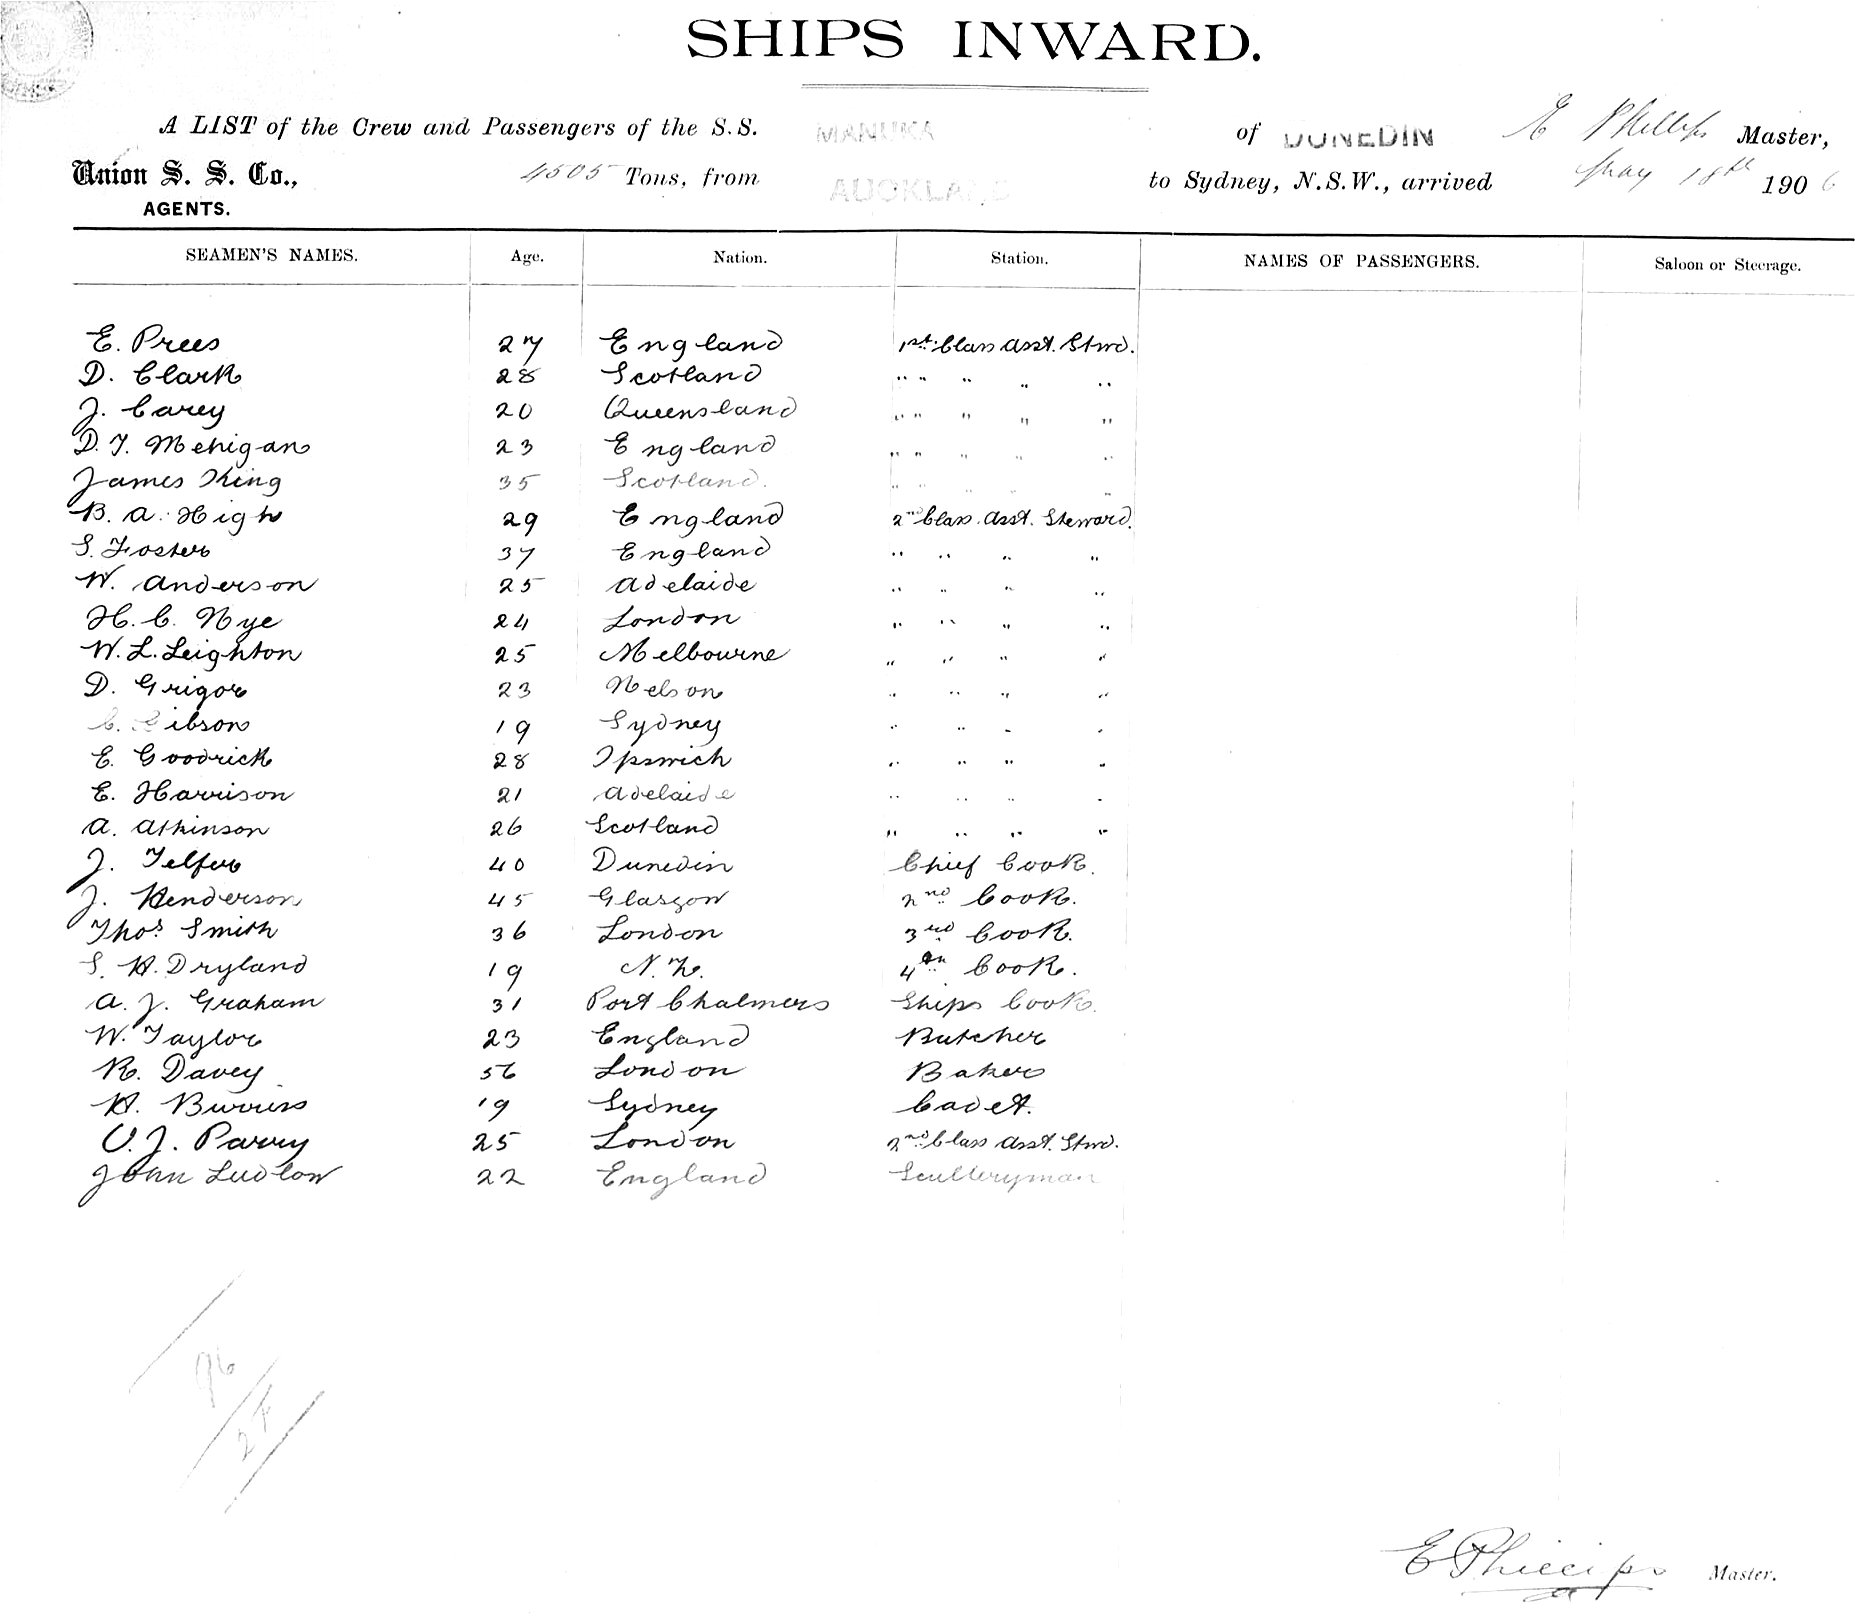 SHIPS INWARD.
A LIST of the Crew and Passengers of the S.S. MANUKA of DUNEDIN E Phillips Master,
Union S. S. Co., 4505 Tons, from AUCKLAND to Sydney, N.S.W., arrived May 18th 1906
AGENTS.
SEAMEN'S NAMES. Age. Nation. Station. NAMES OF PASSENGERS. Saloon or Steerage.
E. Prees 27 England 1st Class Asst. Stwd.
D. Clark 28 Scotland " " " " "
J. Carey 20 Queensland " " " " "
D. J. Mehigan 23 England " " " " "
James King 35 Scotland. " " " " "
B. A. High 29 England 2nd Class Asst. Steward.
S. Foster 37 England " " " "
W. Anderson 25 Adelaide " " " "
H. C. Nye 24 London " " " "
W. L. Leighton 25 Melbourne " " " "
D. Grigor 23 Nelson " " " "
C. Gibson 19 Sydney " " " "
E. Goodrick 28 Ipswich " " " "
E. Harrison 21 Adelaide " " " "
A. Atkinson 26 Scotland " " " "
J. Telfer 40 Dunedin Chief Cook.
J. Henderson 45 Glasgow 2nd Cook.
Thos. Smith 36 London 3rd Cook.
S. H. Dryland 19 N.Z. 4th Cook.
A. J. Graham 31 Port Chalmers Ships Cook.
W. Taylor 23 England Butcher
R. Davey 56 London Baker
H. Burress 19 Sydney Cadet.
C. J. Parry 25 London 2nd Class Asst. Stwd.
John Ludlow 22 England Sculleryman
96
24
E Phillips Master.